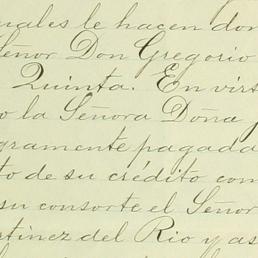 uales le hacen don
Señor Don Gregorio
Quinta. En virt
o la Señora Doña
gramente pagada
to de su crédito com
su consorte el Señor
rtinez del Rio y as